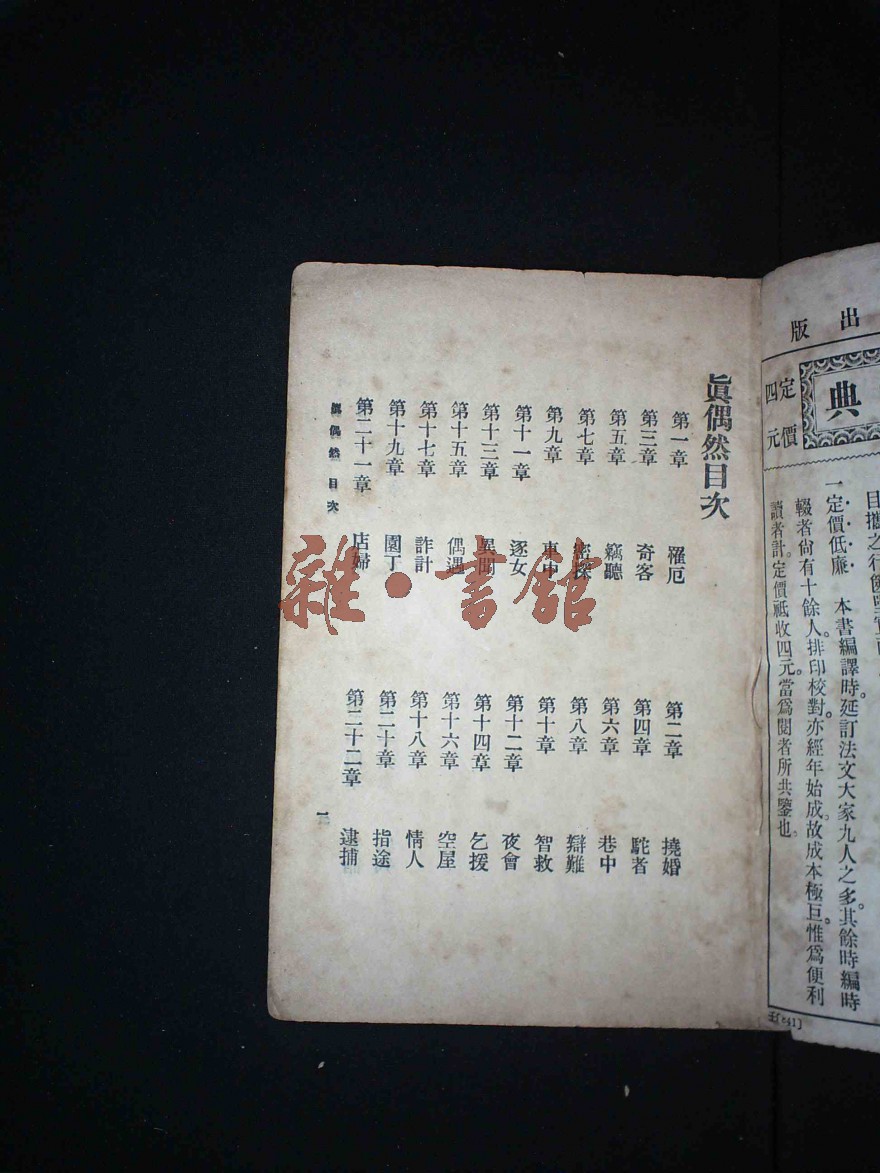 眞偶然目次
第一章 罹厄
第二章 撓婚
第三章 奇客
第四章 駝者
第五章 竊聽
第六章 巷中
第七章 密探
第八章 辯難
第九章 車中
第十章 智救
第十一章 逐女
第十二章 夜會
第十三章 異聞
第十四章 乞援
第十五章 偶遇
第十六章 空屋
第十七章 詐計
第十八章 情人
第十九章 園丁
第二十章 指途
第二十一章 店婦
第二十二章 逮捕
眞偶然 目次
一
雜·書館
出版
典
定價
四元
一定價低廉 本書編譯時延訂法文大家九人之多。其餘時編時
輟者尙有十餘人。排印校對亦經年始成。故成本極巨。惟爲便利
讀者計。定價祗收四元。當爲閱者所共鑒也。